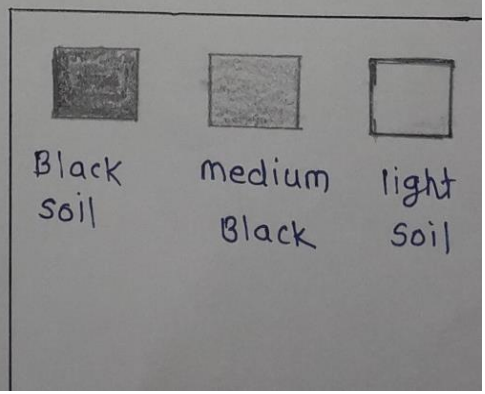 Black
soil
medium
Black
light
soil